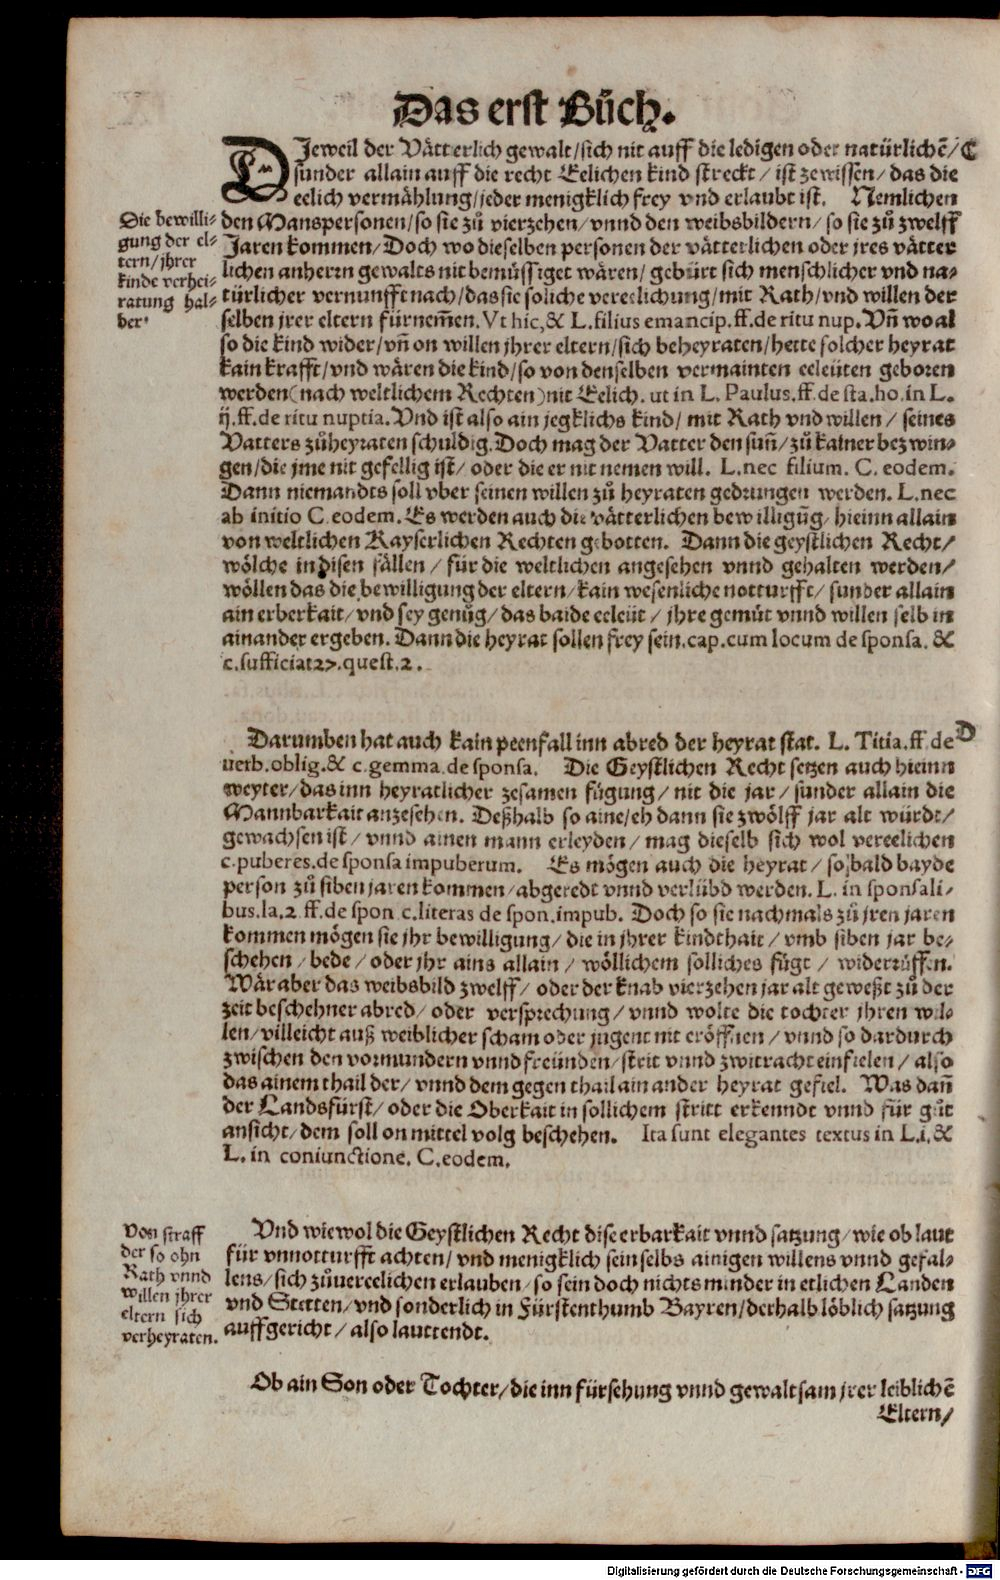 Das erst Bůch.
DJeweil der Vätterlich gewalt/sich nit auff die ledigen oder natürlichẽ/ C
sunder allain auff die recht Eelichen kind streckt/ ist zewissen/das die
eelich vermählung/jeder menigklich frey vnd erlaubt ist. Nemlichen
den Manspersonen/so sie zů vierzehen/vnnd den weibsbildern/so sie zů zwelff
Jaren kommen/Doch wo dieselben personen der vätterlichen oder jres vätter
lichen anherrn gewalts nit bemüssiget wären/gebürt sich menschlicher vnd na-
türlicher vernunfft nach/das sie soliche vereelichung/mit Rath/vnd willen der
selben jrer eltern fürnem̃en. Vt hic,& L. filius emancip.ff.de ritu nup. Vñ wo al
so die kind wider/vñ on willen jhrer eltern/sich beheyraten/hette solcher heyrat
kain krafft/vnd wären die kind/so von denselben vermainten eeleüten geboren
werden(nach weltlichem Rechten)nit Eelich. ut in L. Paulus.ff.de sta.ho.in L.
ij.ff.de ritu nuptia. Vnd ist also ain jegklichs kind/mit Rath vnd willen/ seines
Vatters zůheyraten schuldig. Doch mag der Vatter den sun̄/zů kainer bezwin-
gen/die jme nit gefellig ist/ oder die er nit nemen will. L.nec filium. C. eodem.
Dann niemandts soll vber seinen willen zů heyraten gedrungen werden. L.nec
ab initio C.eodem. Es werden auch die vätterlichen bewilligũg/hieinn allain
von weltlichen Kayserlichen Rechten gebotten. Dann die geystlichen Recht/
wölche in disen fällen/für die weltlichen angesehen vnnd gehalten werden/
wöllen das die bewilligung der eltern/kain wesenliche notturfft/sunder allain
ain erberkait/vnd sey genůg/das baide eeleüt/jhre gemüt vnnd willen selb in
ainander ergeben. Dann die heyrat sollen frey sein.cap.cum locum de sponsa. &
c.sufficiat27.quest.2.
Die bewilli-
gung der el-
tern/jhrer
kinde verhei-
ratung hal-
ber.
Darumben hat auch kain peenfall inn abred der heyrat stat. L. Titia.ff.de D
verb.oblig.& c.gemma.de sponsa. Die Geystlichen Recht setzen auch hieinn
weyter/das inn heyratlicher zesamen fügung/ nit die jar/ sunder allain die
Mannbarkait anzesehen. Deßhalb so aine/eh dann sie zwölff jar alt würdt/
gewachsen ist/ vnnd ainen mann erleyden/ mag dieselb sich wol vereelichen
c.puberes.de sponsa impuberum. Es mögen auch die heyrat/ so bald bayde
person zů siben jaren kommen/abgeredt vnnd verlübd werden. L. in sponsali-
bus.la.2.ff.de spon c.literas de spon.impub. Doch so sie nachmals zů jren jaren
kommen mögen sie jhr bewilligung/die in jhrer kindthait/vmb siben jar be-
schehen/bede/oder jhr ains allain/ wöllichem solliches fügt / widerrüffen.
Wär aber das weibsbild zwelff/oder der knab vierzehen jar alt geweßt zů der
zeit beschehner abred/ oder versprechung/ vnnd wolte die tochter jhren wil-
len/villeicht auß weiblicher scham oder jugent nit eröffnen / vnnd so dardurch
zwischen den vormundern vnnd freünden/strit vnnd zwitracht einfielen/ also
das ainem thail der/ vnnd dem gegen thail ain ander heyrat gefiel. Was dañ
der Landsfürst/oder die Oberkait in sollichem stritt erkenndt vnnd für gůt
ansicht/dem soll on mittel volg beschehen. Ita sunt elegantes textus in L.i.&
L. in coniunctione. C.eodem.
Von straff
der so ohn
Rath vnnd
willen jhrer
eltern sich
verheyraten.
Vnd wiewol die Geystlichen Recht dise erbarkait vnnd satzung/wie ob laut
für vnnotturfft achten/vnd menigklich sein selbs ainigen willens vnnd gefal-
lens/sich zůvereelichen erlauben/so sein doch nichts minder in etlichen Landen
vnd Stetten/vnd sonderlich in Fürstenthumb Bayren/derhalb löblich satzung
auffgericht/also lauttendt.
Ob ain Son oder Tochter/die inn fürsehung vnnd gewaltsam jrer leiblichẽ
Eltern/
Digitalisierung gefördert durch die Deutsche Forschungsgemeinschaft - DFG